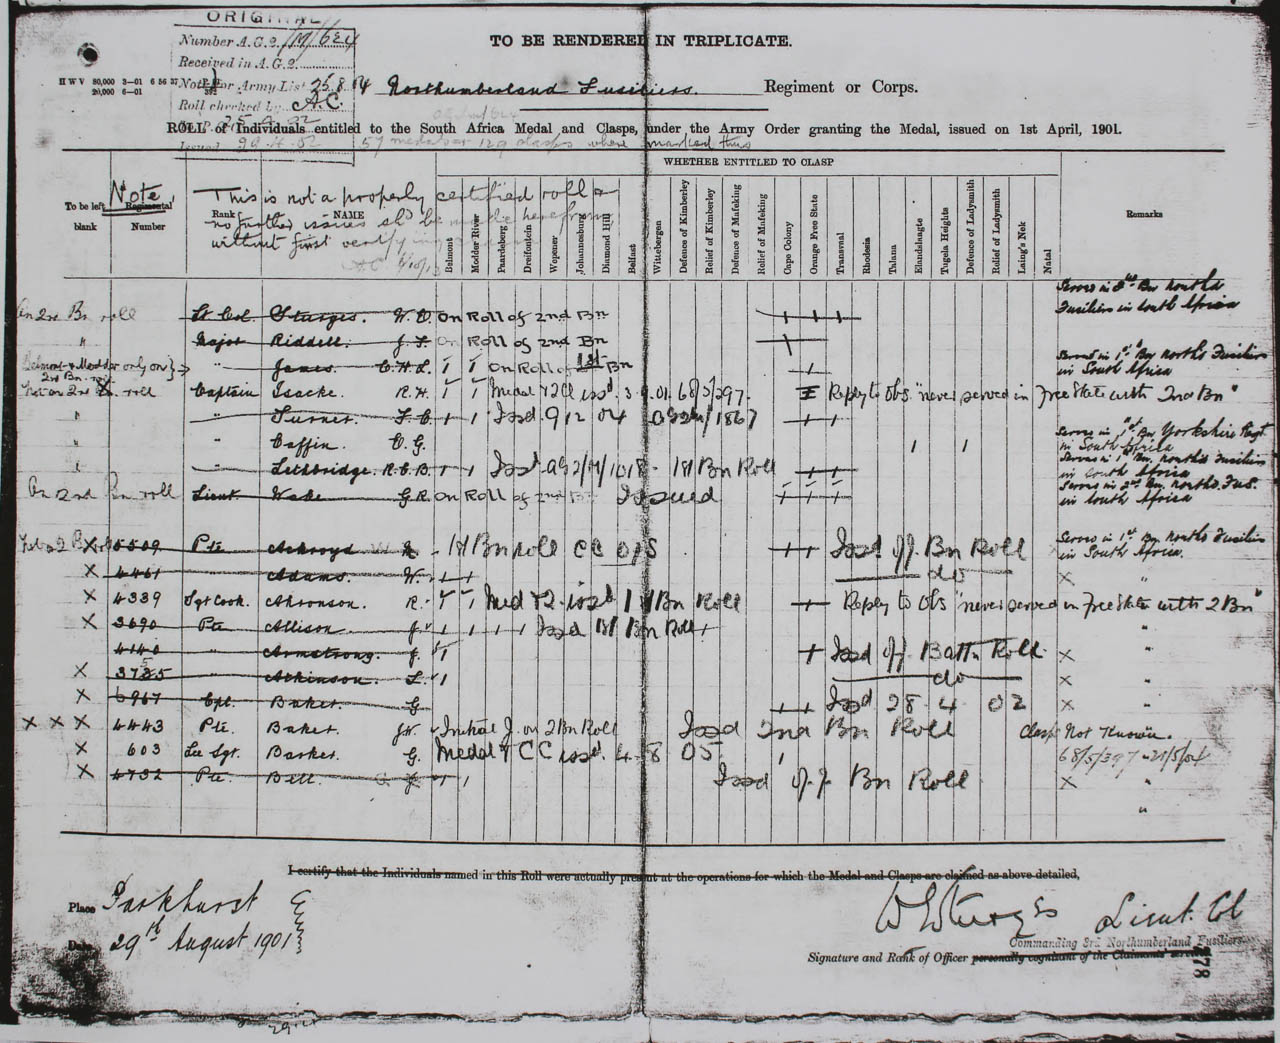 ORIGINAL
Number A.G.2/M/624
TO BE RENDERED IN TRIPLICATE.
Received in A.G.2.
H W V 80,000 3—01
20,000 6—01
Noted for Army List 25.8.04
Northumberland Fusiliers. Regiment or Corps.
Roll checked by A.C.
ROLL of Individuals entitled to the South Africa Medal and Clasps, under the Army Order granting the Medal, issued on 1st April, 1901.
57 medals or 129 clasps where marked thus
WHETHER ENTITLED TO CLASP
To be left blank
Note
Regimental Number
Rank
NAME
This is not a properly certified roll &
no further issues shd be made herefrom
without first verifying
Belmont
Modder River
Paardeberg
Dreifontein
Wepener
Johannesburg
Diamond Hill
Belfast
Wittebergen
Defence of Kimberley
Relief of Kimberley
Defence of Mafeking
Relief of Mafeking
Cape Colony
Orange Free State
Transvaal
Rhodesia
Talana
Elandslaagte
Tugela Heights
Defence of Ladysmith
Relief of Ladysmith
Laing's Nek
Natal
Remarks
On 2nd Bn roll Lt Col. Sturges. W. E. On Roll of 2nd Bn Serves in 2nd Bn North'd Fusiliers in South Africa
" Major Riddell. J. F. On Roll of 2nd Bn
Belmont & Modder only on 2nd Bn roll " James. C. H. L. On Roll of 1st Bn Served in 1st Bn North'd Fusiliers in South Africa
Not on 2nd Bn roll Captain Isacke. R. H. Medal & 2 Cl issd. 3.9.01. 68/5/297. Reply to obs. "never served in Free State with 2nd Bn"
" " Turner. F. C. Issd 9 12 04 /1867
" " Caffin. E. G. Serves in 1st Bn Yorkshire Regt in South Africa
" " Lethbridge. R. C. B. Issd AG2/M/1018 - 1st Bn Roll Serves in 1st Bn North'd Fusiliers in South Africa
On 2nd Bn roll Lieut Wake G. R. On Roll of 2nd Bn Issued Serves in 2nd Bn North'd Fus. in South Africa
X 5509 Pte Ackroyd 1st Bn roll CC OFS Issd off Bn Roll Serves in 1st Bn North'd Fusiliers in South Africa.
X 4461 " Adams. W. do X "
X 4339 Sgt Cook. Aaronson. R. Med & 2 issd 1st Bn Roll Reply to Obs "never served in Free State with 2 Bn"
X 3690 Pte Allison J. Issd 1st Bn Roll "
4140 " Armstrong. J. Issd off Battn Roll X "
X 3735 " Atkinson. L. do X "
X 6967 Cpl. Baker. G Issd 28 4 02 X "
X X X 4443 Pte. Baker. Initial J. on 2 Bn Roll Issd 2nd Bn Roll Clasps Not Known.
X 603 Lce Sgt. Barker. G. Medal & CC issd. 4 8 05. 68/5/397 - 21/5/04
X 4732 Pte. Bell Issd off Bn Roll X "
"
I certify that the Individuals named in this Roll were actually present at the operations for which the Medal and Clasps are claimed as above detailed,
Place Parkhurst
Date 29th August 1901
W E Sturges Lieut. Col
Commanding 3rd Northumberland Fusiliers
Signature and Rank of Officer personally cognizant of the Claimants' services
278